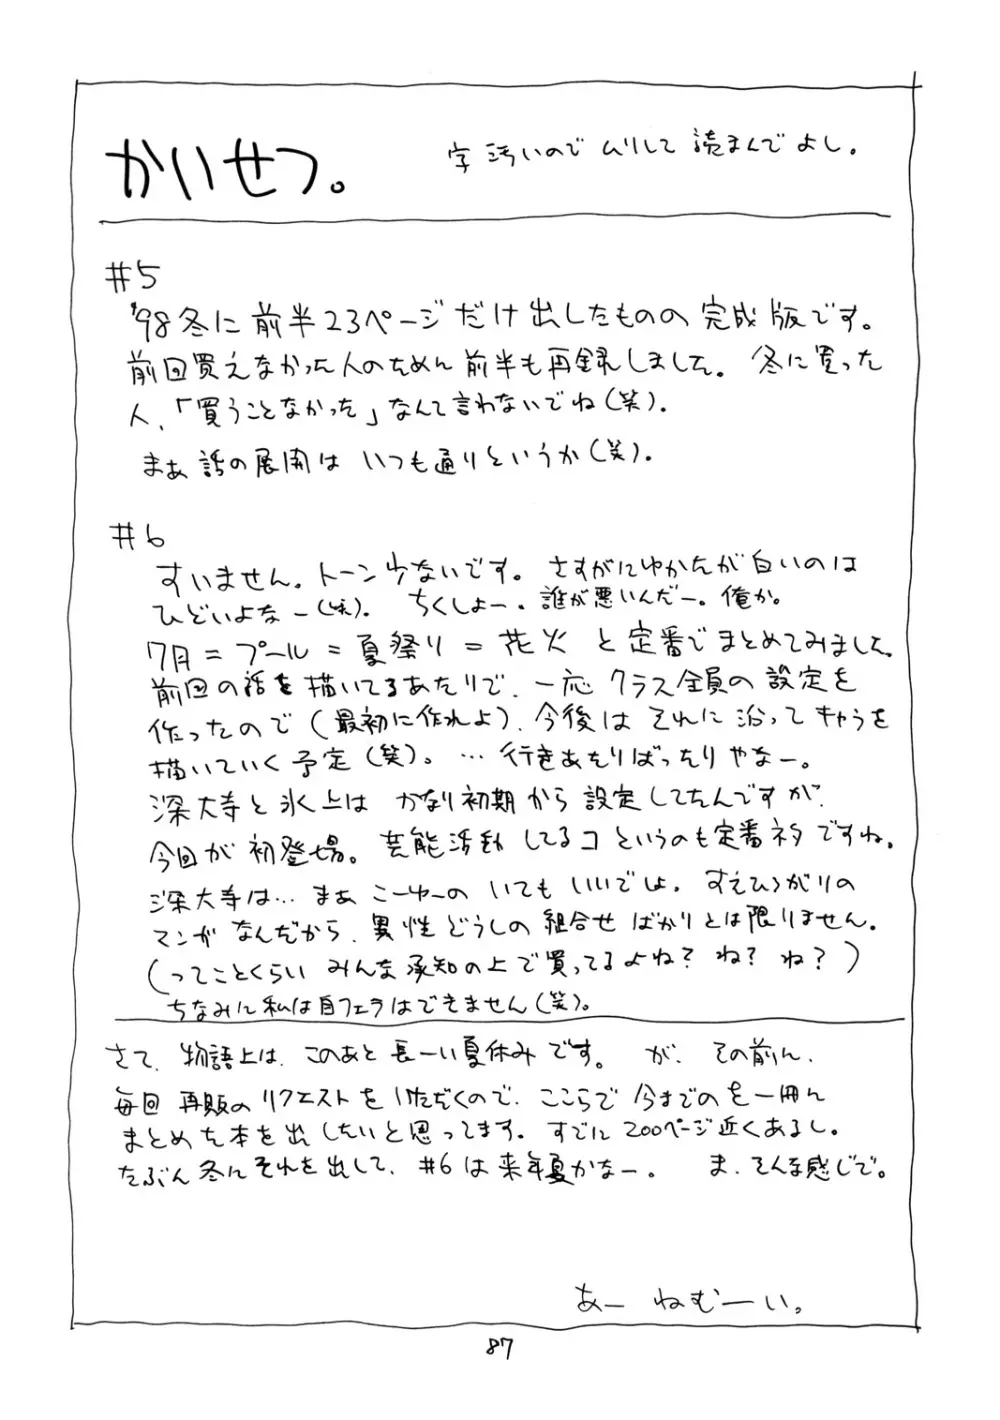 かいせつ。
字汚いのでムリして読まんでよし。
#5
'98冬に前半23ページだけ出したものの完成版です。
前回買えなかった人のために前半も再録しました。冬に買った
人、「買うことなかった」なんて言わないでね(笑)。
まぁ話の展開はいつも通りというか(笑)。
#6
すいません。トーン少ないです。さすがにゆかたが白いのは
ひどいよなー(泣)。ちくしょー。誰が悪いんだー。俺か。
7月=プール=夏祭り=花火と定番でまとめてみました。
前回の話を描いてるあたりで、一応クラス全員の設定を
作ったので(最初に作れよ)、今後はそれに沿ってキャラを
描いていく予定(笑)。…行きあたりばったりやなー。
深大寺と氷上はかなり初期から設定してたんですが、
今回が初登場。芸能活動してるコというのも定番ネタですね。
深大寺は…まぁこーゆーのいてもいいでしょ。すえひろがりの
マンガなんだから、異性どうしの組合せばかりとは限りません。
(ってことくらいみんな承知の上で買ってるよね?ね?ね?)
ちなみに私は自フェラはできません(笑)。
さて、物語上は、このあと長ーい夏休みです。が、その前に、
毎回再販のリクエストをいただくので、ここらで今までのを一冊に
まとめた本を出したいと思ってます。すでに200ページ近くあるし。
たぶん冬にそれを出して、#6は来年夏かなー。ま、そんな感じで。
あー ねむーい。
87